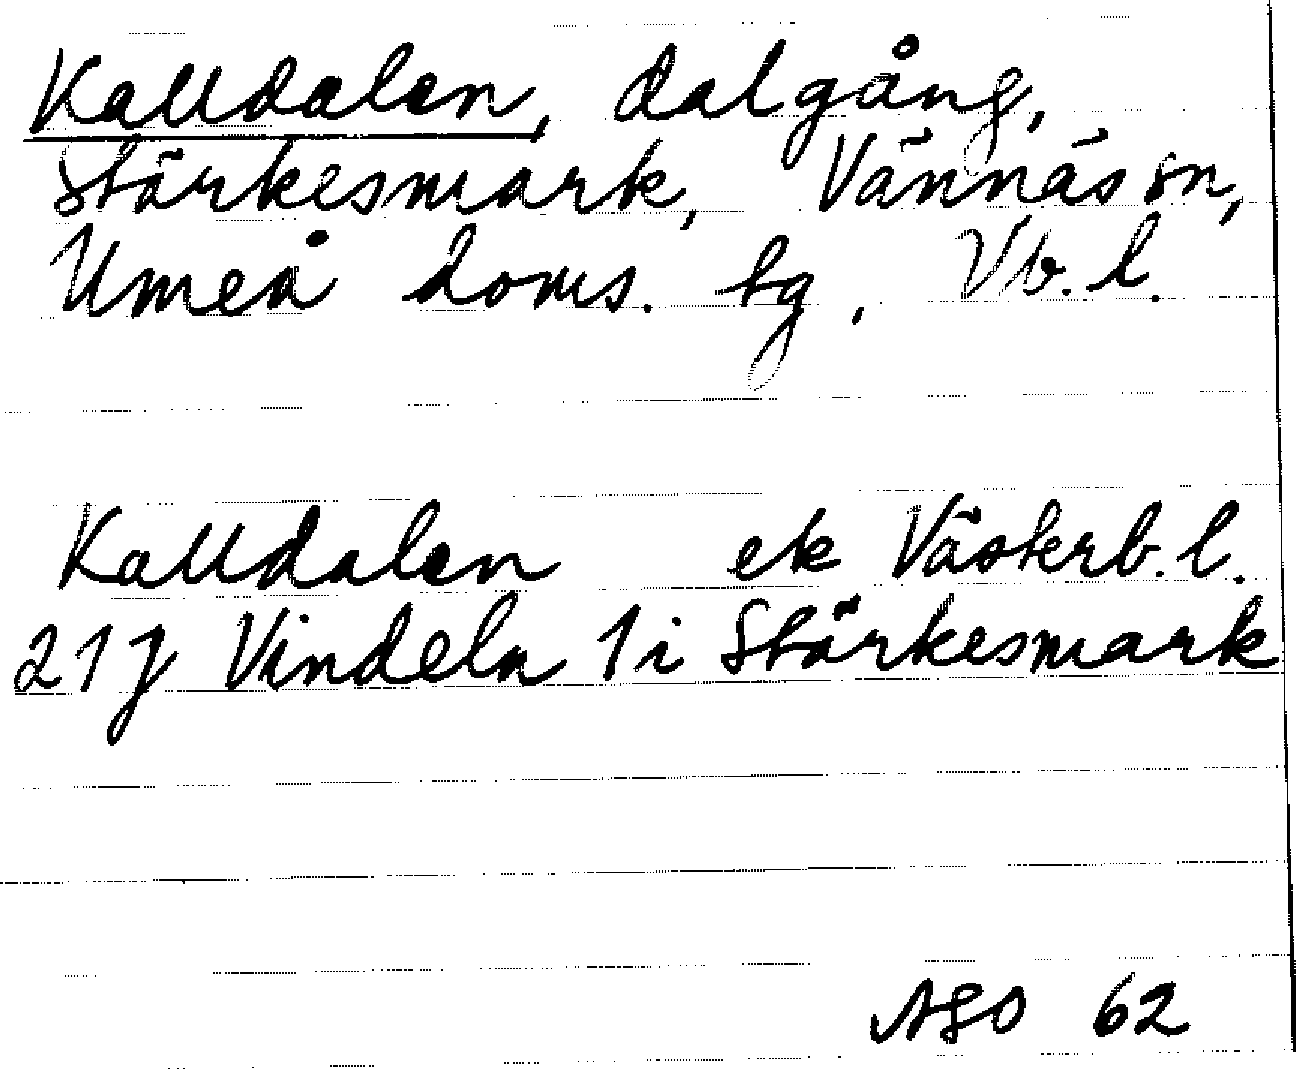 Kalldalen, dalgång,
Stärkesmark, Vännäs sn,
Umeå doms. tg, Vb. l.
Kalldalen ek Västerb. l.
21J Vindeln 1i Stärkesmark
ASO 62